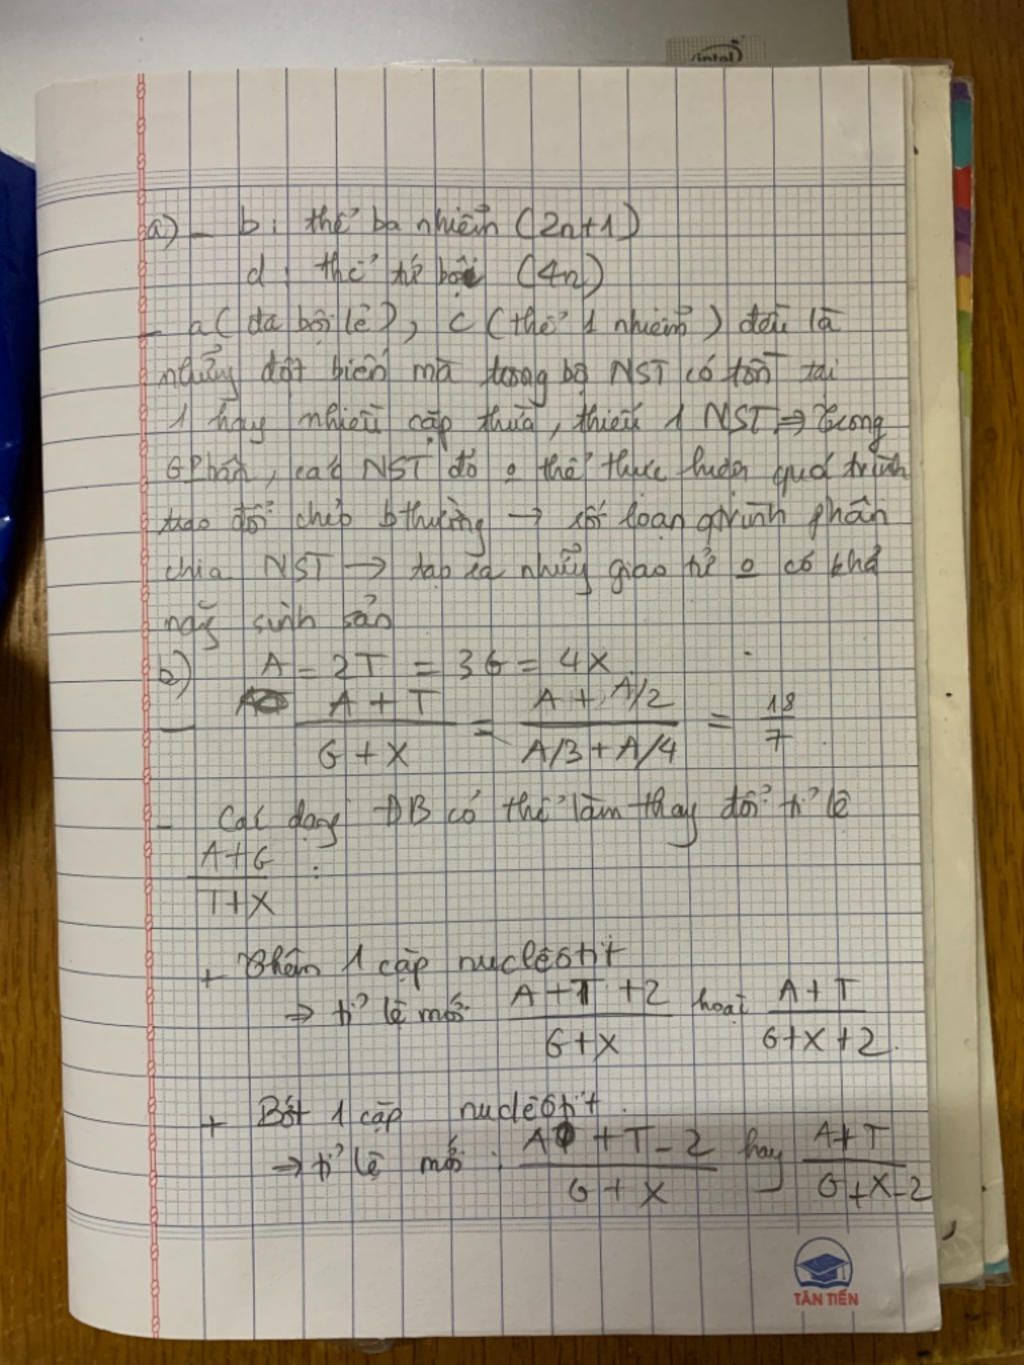 intel
a) - b: thể ba nhiễm (2n+1)
d: thể tứ bội (4n)
- a (đa bội lẻ), c (thể 1 nhiễm) đều là
những đột biến mà trong bộ NST có tồn tại
1 hay nhiều cặp thừa, thiếu 1 NST ⇒ trong
GPhân, các NST đó o thể thực hiện quá trình
trao đổi chéo bthường → rối loạn qtrình phân
chia NST → tạo ra những giao tử o có khả
năg sinh sản
b) A = 2T = 3G = 4X
- A + T / G + X = A + A/2 / A/3 + A/4 = 18/7
- Các dạng ĐB có thể làm thay đổi tỉ lệ
A+G / T+X :
+ Thêm 1 cặp nuclêôtit
⇒ tỉ lệ mới A+T+2 / G+X hoặc A+T / G+X+2.
+ Bớt 1 cặp nuclêôtit.
→ tỉ lệ mới: A + T - 2 / G + X hay A+T / G+X-2
TÂN TIẾN